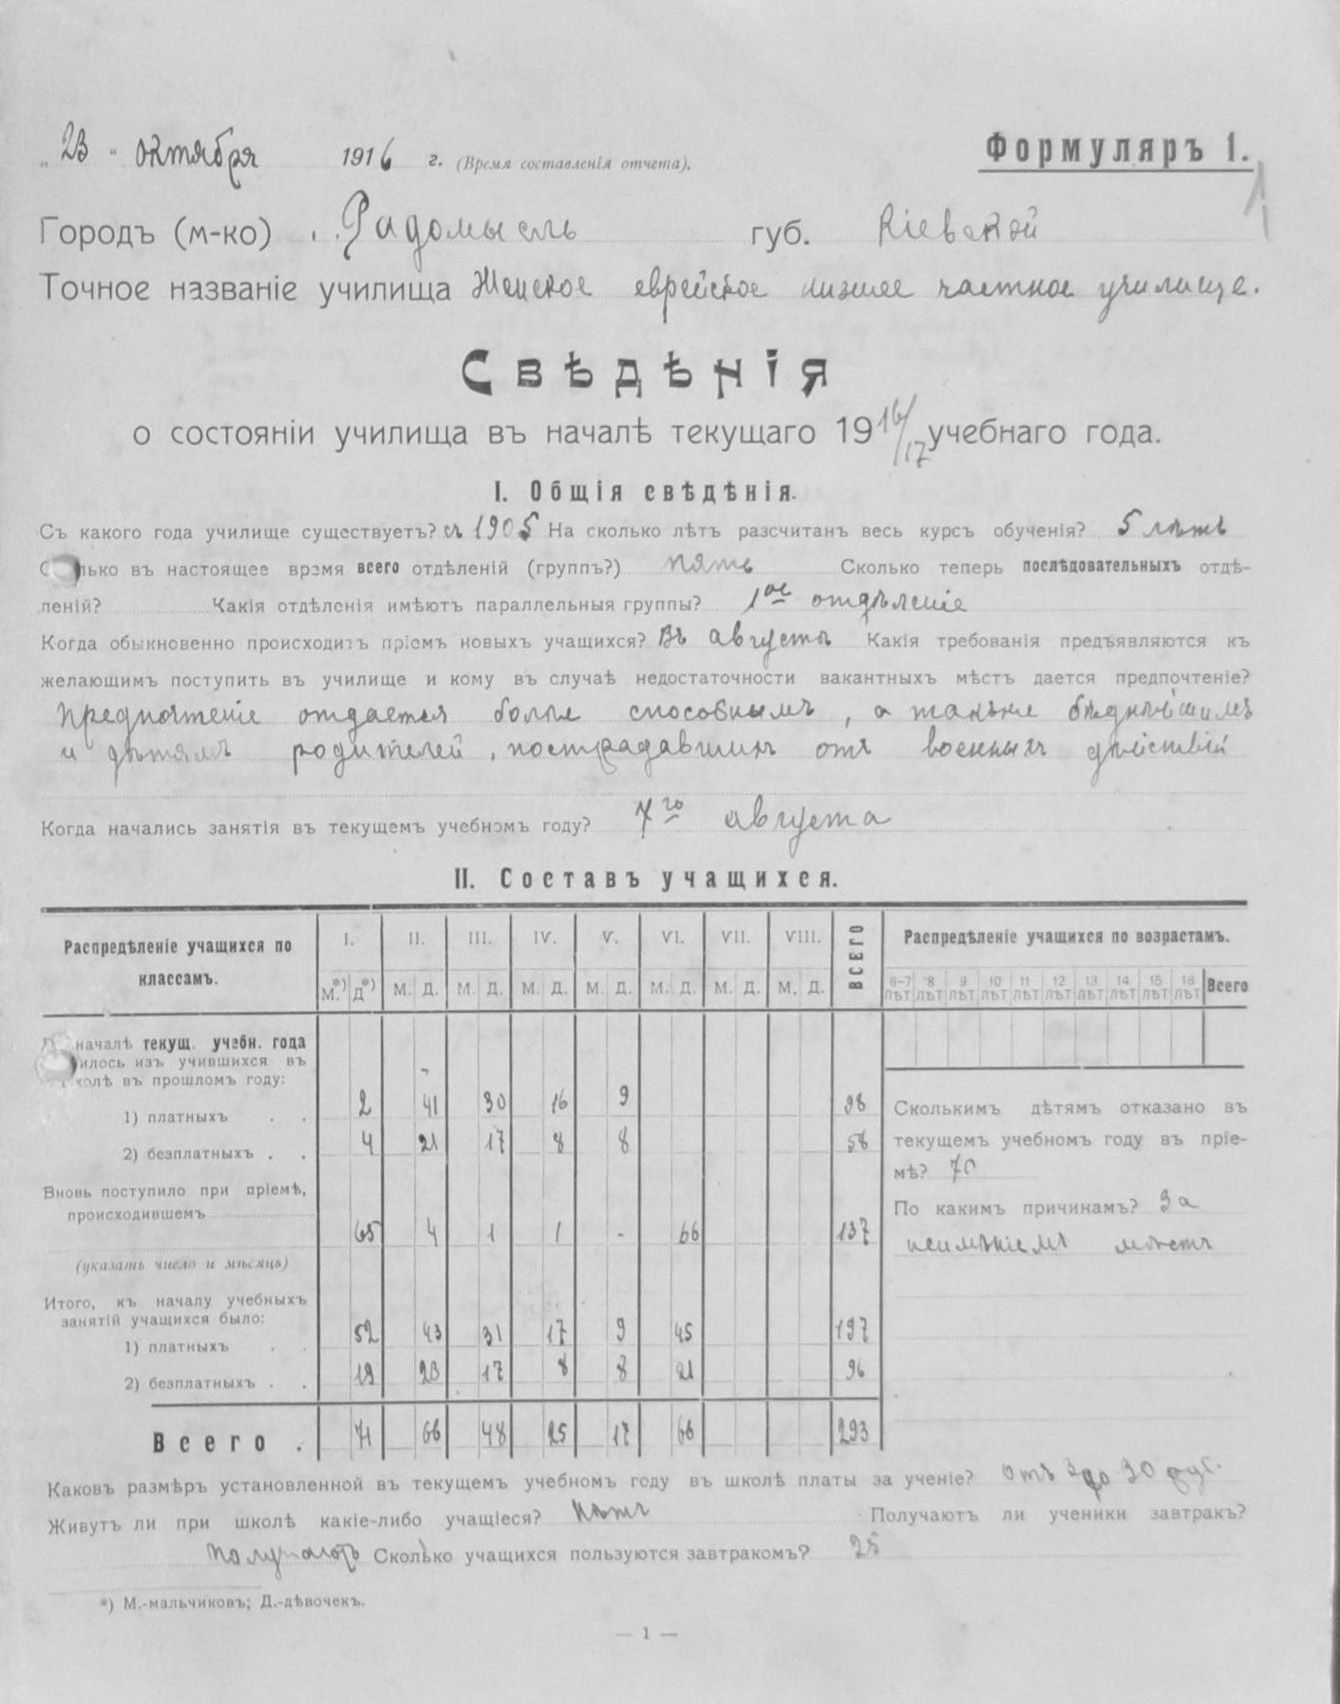 „23“ октября 1916 г. (Время составленія отчета).
Формуляръ 1.
1
Городъ (м-ко) Радомысль губ. Кіевской
Точное названіе училища Женское еврейское низшее частное училище.
Свѣдѣнія
о состояніи училища въ началѣ текущаго 1916/17 учебнаго года.
I. Общія свѣдѣнія.
Съ какого года училище существуетъ? съ 1905 На сколько лѣтъ разсчитанъ весь курсъ обученія? 5 лѣтъ
Сколько въ настоящее время всего отдѣленій (группъ?) пять Сколько теперь послѣдовательныхъ отдѣ-
леній? Какія отдѣленія имѣютъ параллельныя группы? 1ое отдѣленіе
Когда обыкновенно происходитъ пріемъ новыхъ учащихся? Въ августѣ Какія требованія предъявляются къ
желающимъ поступить въ училище и кому въ случаѣ недостаточности вакантныхъ мѣстъ дается предпочтеніе?
Предпочтеніе отдается болѣе способнымъ, а также бѣднѣйшимъ
и дѣтямъ родителей, пострадавшихъ отъ военныхъ дѣйствій
Когда начались занятія въ текущемъ учебномъ году? 7го августа
II. Составъ учащихся.
Распредѣленіе учащихся по классамъ. I. II. III. IV. V. VI. VII. VIII. ВСЕГО Распредѣленіе учащихся по возрастамъ.
М.*) Д*) М. Д. М. Д. М. Д. М. Д. М. Д. М. Д. М. Д. 6–7 лѣт 8 лѣт 9 лѣт 10 лѣт 11 лѣт 12 лѣт 13 лѣт 14 лѣт 15 лѣт 16 лѣт Всего
началѣ текущ. учебн. года
илось изъ учившихся въ
школѣ въ прошломъ году:
1) платныхъ . . 2 41 30 16 9 98
2) безплатныхъ . . 4 21 17 8 8 58
Вновь поступило при пріемѣ,
происходившемъ 65 4 1 1 - 66 137
(указать число и мѣсяцъ)
Итого, къ началу учебныхъ
занятій учащихся было:
1) платныхъ . . 52 43 31 17 9 45 197
2) безплатныхъ . . 19 23 17 8 8 21 96
Всего . 71 66 48 25 17 66 293
Сколькимъ дѣтямъ отказано въ
текущемъ учебномъ году въ пріе-
мѣ? 70
По какимъ причинамъ? За
неимѣніемъ мѣстъ
Каковъ размѣръ установленной въ текущемъ учебномъ году въ школѣ платы за ученіе? отъ 3 до 30 руб.
Живутъ ли при школѣ какіе-либо учащіеся? Нѣтъ Получаютъ ли ученики завтракъ?
Получаютъ Сколько учащихся пользуются завтракомъ? 25
*) М.-мальчиковъ; Д.-дѣвочекъ.
— 1 —